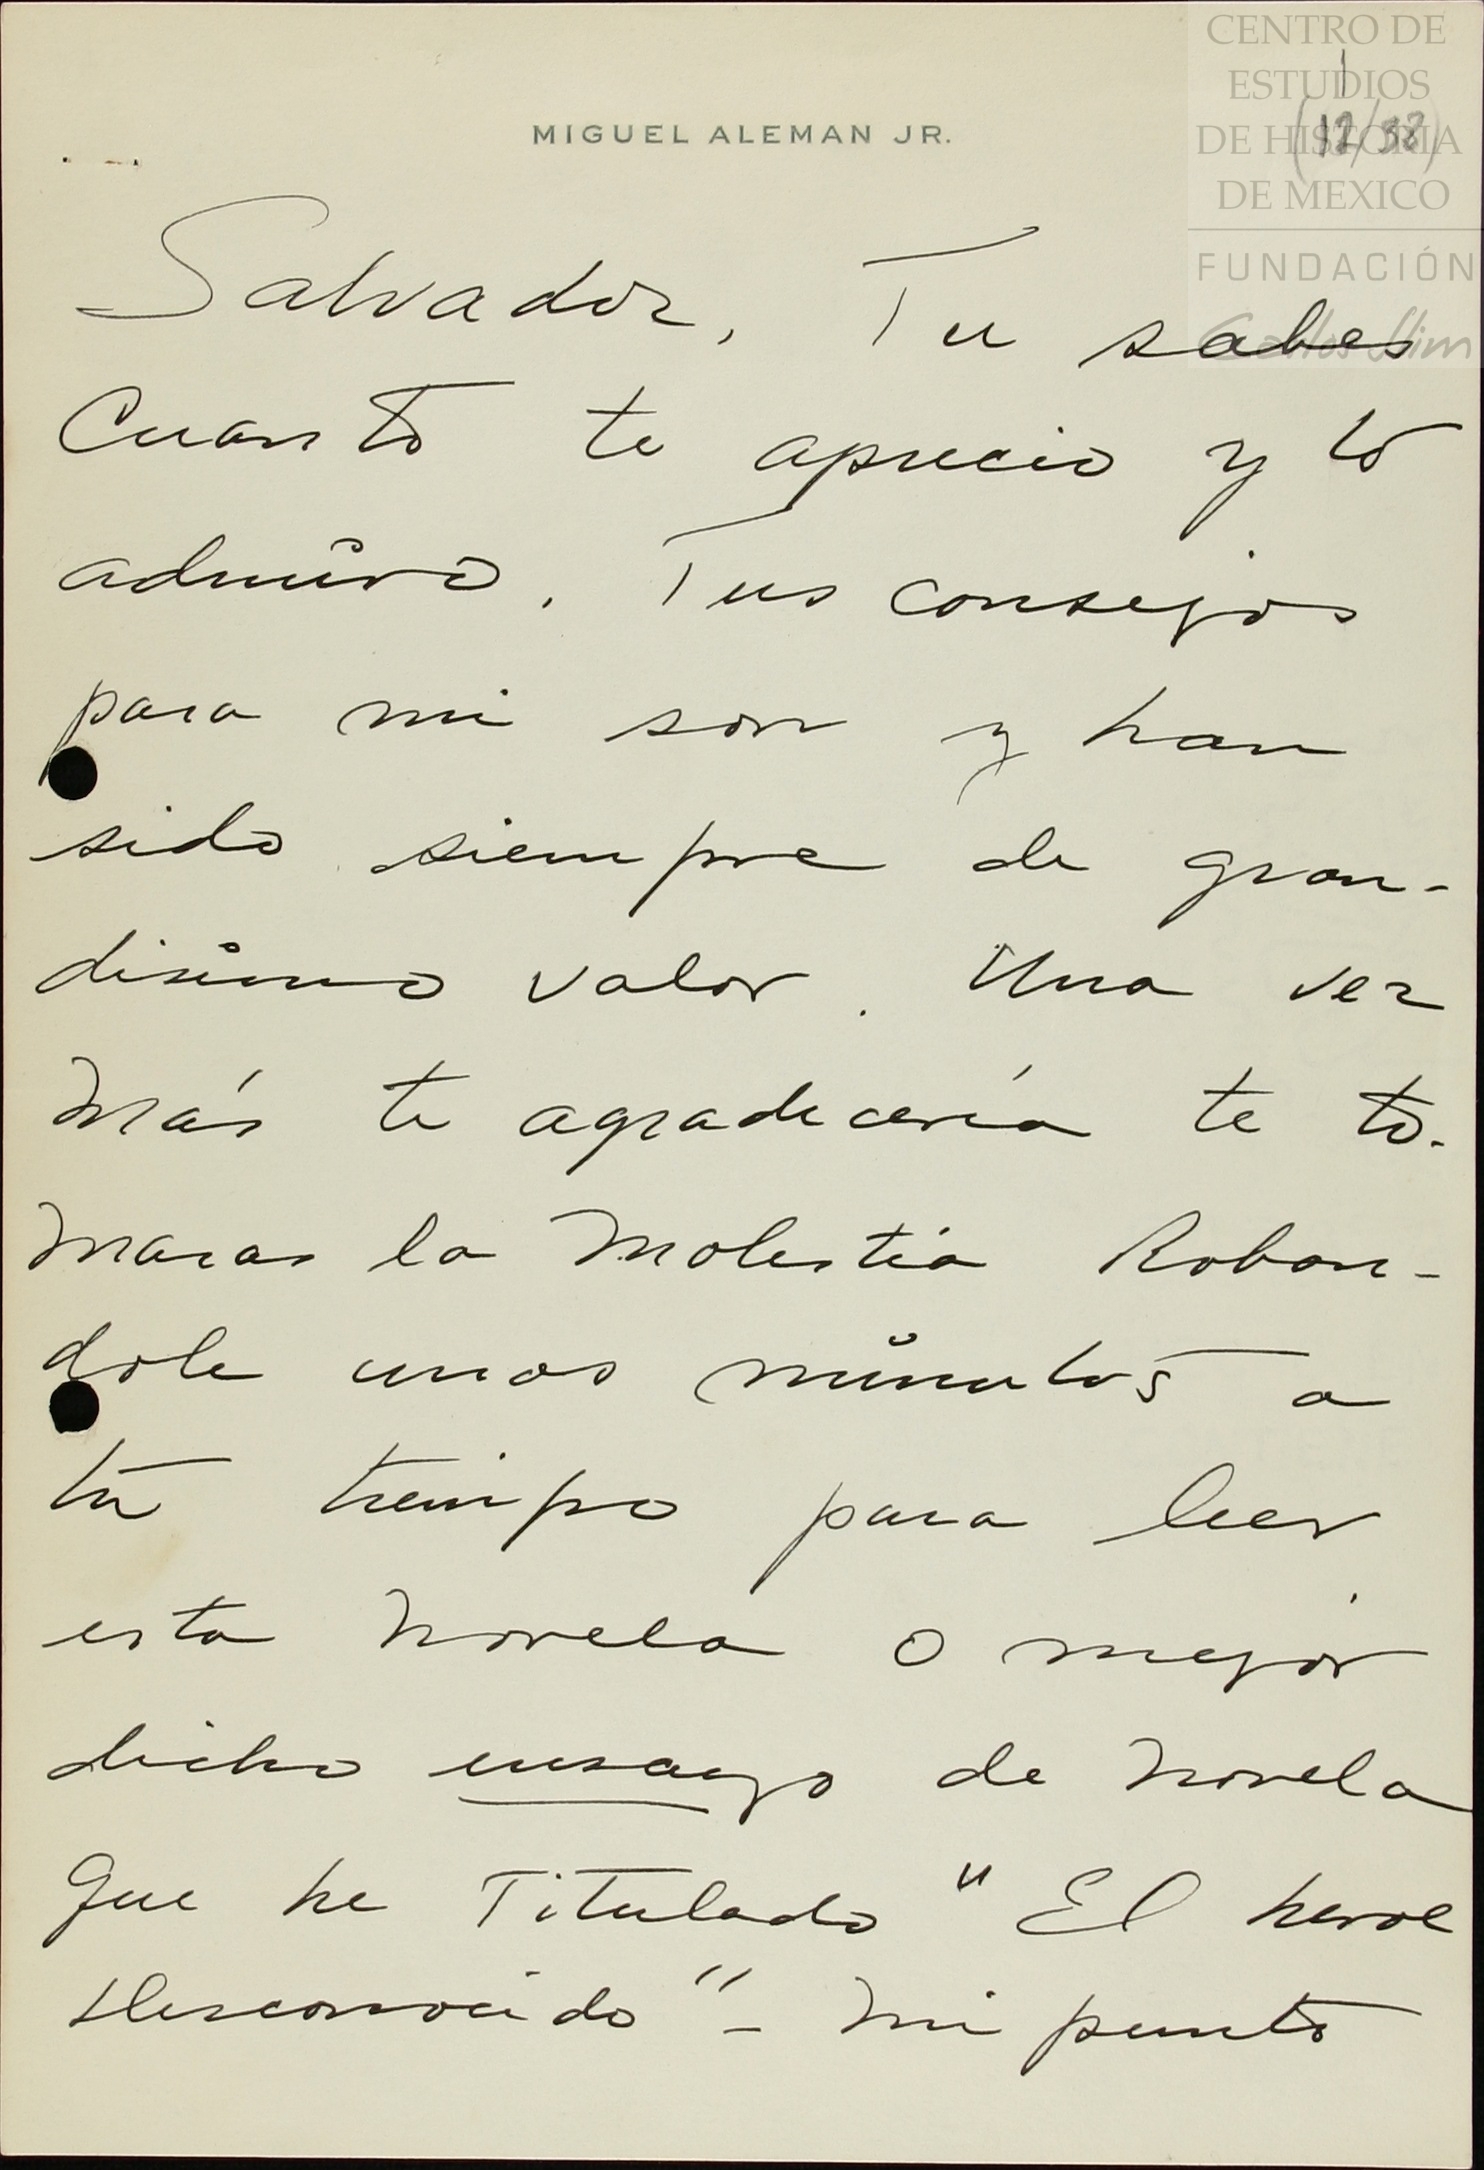 CENTRO DE
ESTUDIOS
DE HISTORIA
DE MEXICO
FUNDACIÓN
Carlos Slim
1
(12/38)
MIGUEL ALEMAN JR.
Salvador, Tu sabes
Cuanto te aprecio y lo
admiro. Tus consejos
para mi son y han
sido siempre de gran-
disimo valor. Una vez
Más te agradecería te to-
maras la molestia Roban-
dole unos minutos a
tu tiempo para leer
esta novela o mejor
dicho ensayo de novela
Que he Titulado "El heroe
desconocido" - Mi punto